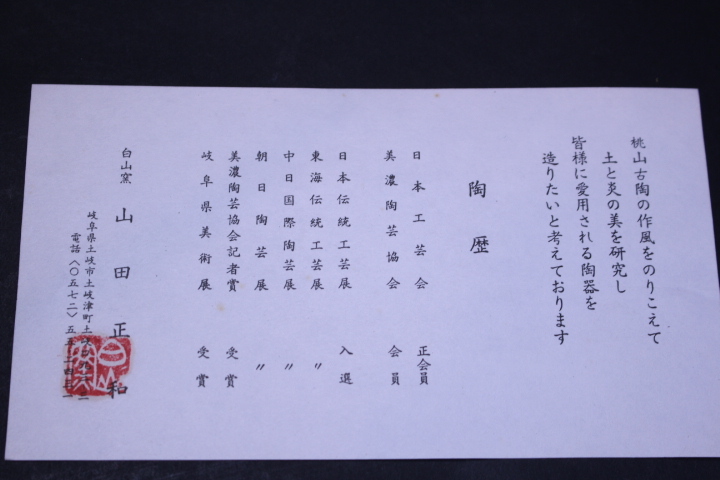 桃山古陶の作風をのりこえて
土と炎の美を研究し
皆様に愛用される陶器を
造りたいと考えております
陶歴
日本工芸会 正会員
美濃陶芸協会 会員
日本伝統工芸展 入選
東海伝統工芸展 〃
中日国際陶芸展 〃
朝日陶芸展 〃
美濃陶芸協会記者賞 受賞
岐阜県美術展 受賞
白山窯 山田正和
岐阜県土岐市土岐津町土岐
電話〈〇五七二〉五五